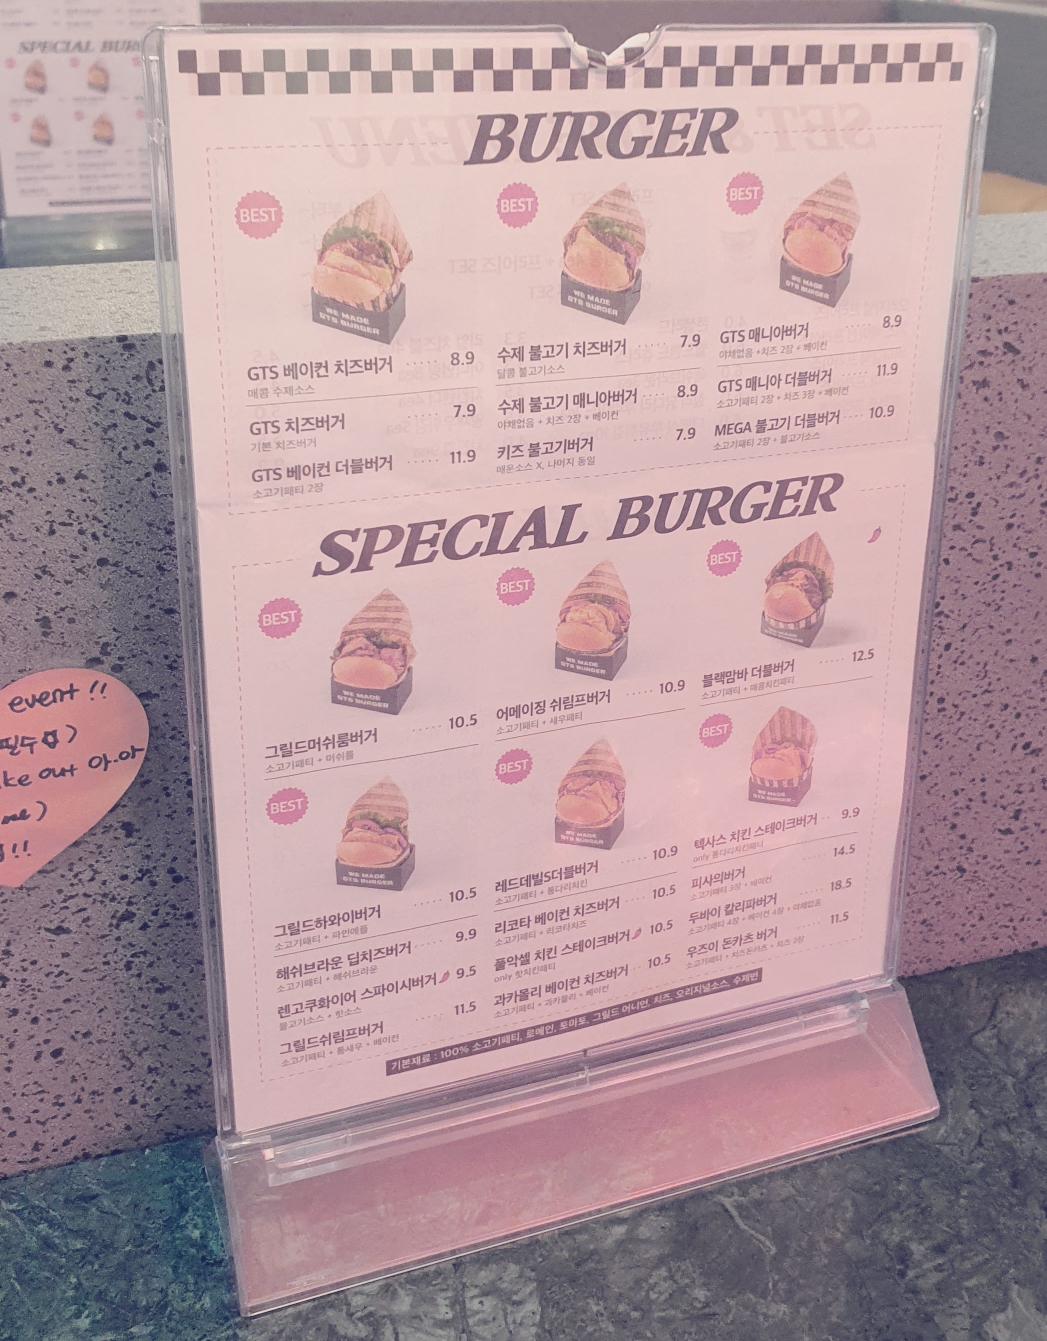 SPECIAL BUR
BURGER
BEST
WE MADE
GTS BURGER
GTS 베이컨 치즈버거 8.9
매콤 수제소스
GTS 치즈버거 ····· 7.9
기본 치즈버거
GTS 베이컨 더블버거 ····· 11.9
소고기패티 2장
BEST
WE MADE
GTS BURGER
수제 불고기 치즈버거 7.9
달콤 불고기소스
수제 불고기 매니아버거 8.9
야채없음 + 치즈 2장 + 베이컨
키즈 불고기버거 ····· 7.9
매운소스 X, 나머지 동일
BEST
WE MADE
GTS BURGER
GTS 매니아버거 8.9
야채없음 +치즈 2장 + 베이컨
GTS 매니아 더블버거 ····· 11.9
소고기패티 2장 + 치즈 3장 + 베이컨
MEGA 불고기 더블버거 ···· 10.9
소고기패티 2장 + 불고기소스
SPECIAL BURGER
BEST
WE MADE
GTS BURGER
그릴드머쉬룸버거 ····· 10.5
소고기패티 + 머쉬룸
BEST
WE MADE
GTS BURGER
어메이징 쉬림프버거 ····· 10.9
소고기패티 + 새우패티
BEST
블랙맘바 더블버거 ····· 12.5
소고기패티 + 매콤치킨패티
BEST
WE MADE
GTS BURGER
그릴드하와이버거 10.5
소고기패티 + 파인애플
해쉬브라운 딥치즈버거 ····· 9.9
소고기패티 + 해쉬브라운
렌고쿠화이어 스파이시버거 9.5
불고기소스 + 핫소스
그릴드쉬림프버거 ····· 11.5
소고기패티 + 통새우 + 베이컨
BEST
WE MADE
GTS BURGER
레드데빌S더블버거 ····· 10.9
소고기패티 + 통다리치킨
리코타 베이컨 치즈버거 ····· 10.5
소고기패티 + 리코타치즈
풀악셀 치킨 스테이크버거 10.5
only 핫치킨패티
과카몰리 베이컨 치즈버거 ···· 10.5
소고기패티 + 과카몰리 + 베이컨
BEST
WE MADE
GTS BURGER
텍사스 치킨 스테이크버거 ··· 9.9
only 통다리치킨패티
피사의버거 ····· 14.5
소고기패티 3장 + 베이컨
두바이 칼리파버거 ····· 18.5
소고기패티 4장 + 베이컨 4장 + 야채없음
우즈이 돈카츠 버거 ····· 11.5
소고기패티 + 치즈돈카츠 + 치즈 2장
기본재료 : 100% 소고기패티, 로메인, 토마토, 그릴드 어니언, 치즈, 오리지널소스, 수제번
event !!
필수☆)
ke out 아.아
me)
!!